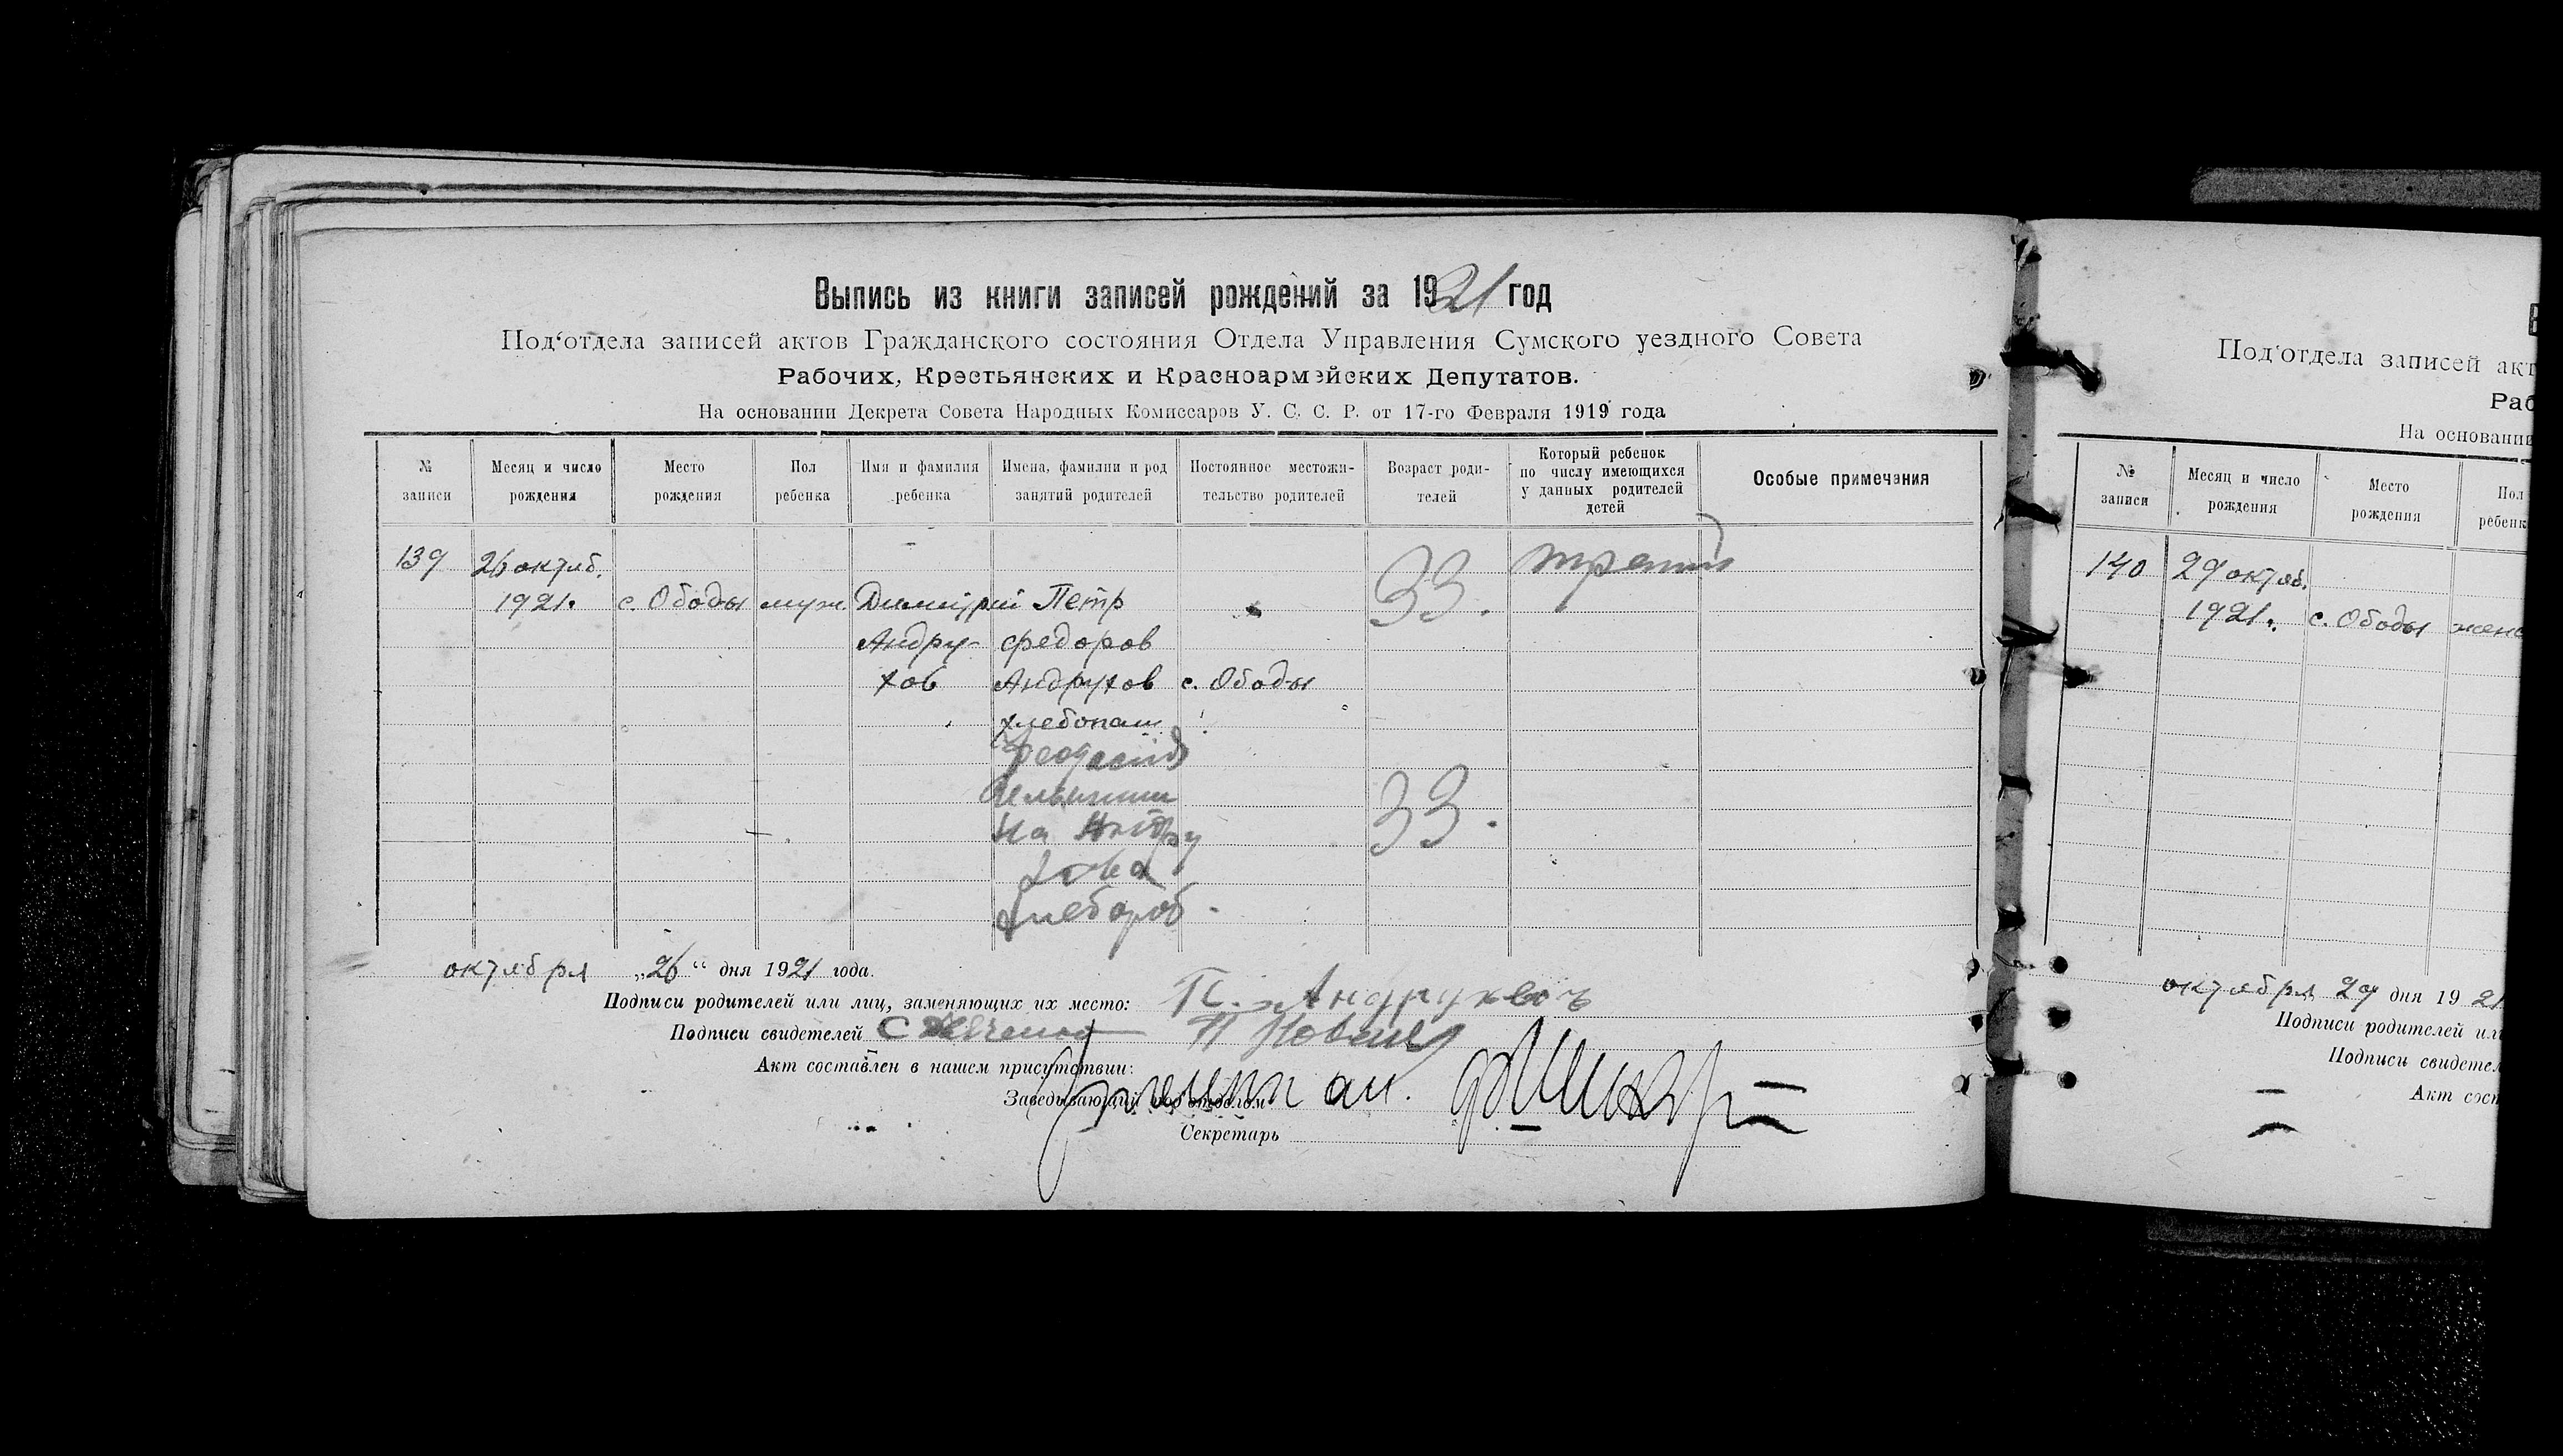 Выпись из книги записей рождений за 1921 год
Под‘отдела записей актов Гражданского состояния Отдела Управления Сумского уездного Совета
Рабочих, Крестьянских и Красноармейских Депутатов.
На основании Декрета Совета Народных Комиссаров У. С. С. Р. от 17-го Февраля 1919 года
№ записи
Месяц и число рождения
Место рождения
Пол ребенка
Имя и фамилия ребенка
Имена, фамилии и род занятий родителей
Постоянное местожительство родителей
Возраст родителей
Который ребенок по числу имеющихся у данных родителей детей
Особые примечания
139 26 октяб. 33. третий
1921. с. Ободы муж Димитрий Петр
Андру- Федоров
хов Андрухов с. Ободы
хлебопаш
33.
на Андру
хова
хлебороб.
октября „26“ дня 1921 года.
Подписи родителей или лиц, заменяющих их место: П. Андруховъ
Подписи свидетелей
Акт составлен в нашем присутствии:
Заведывающий под‘отделом
Секретарь
Под‘отдела записей акт
Раб
На основании
№ записи
Месяц и число рождения
Место рождения
Пол ребенк
140 29 октяб.
1921. с. Ободы женс
октября 29 дня 1921
Подписи родителей ил
Подписи свидетел
Акт сост